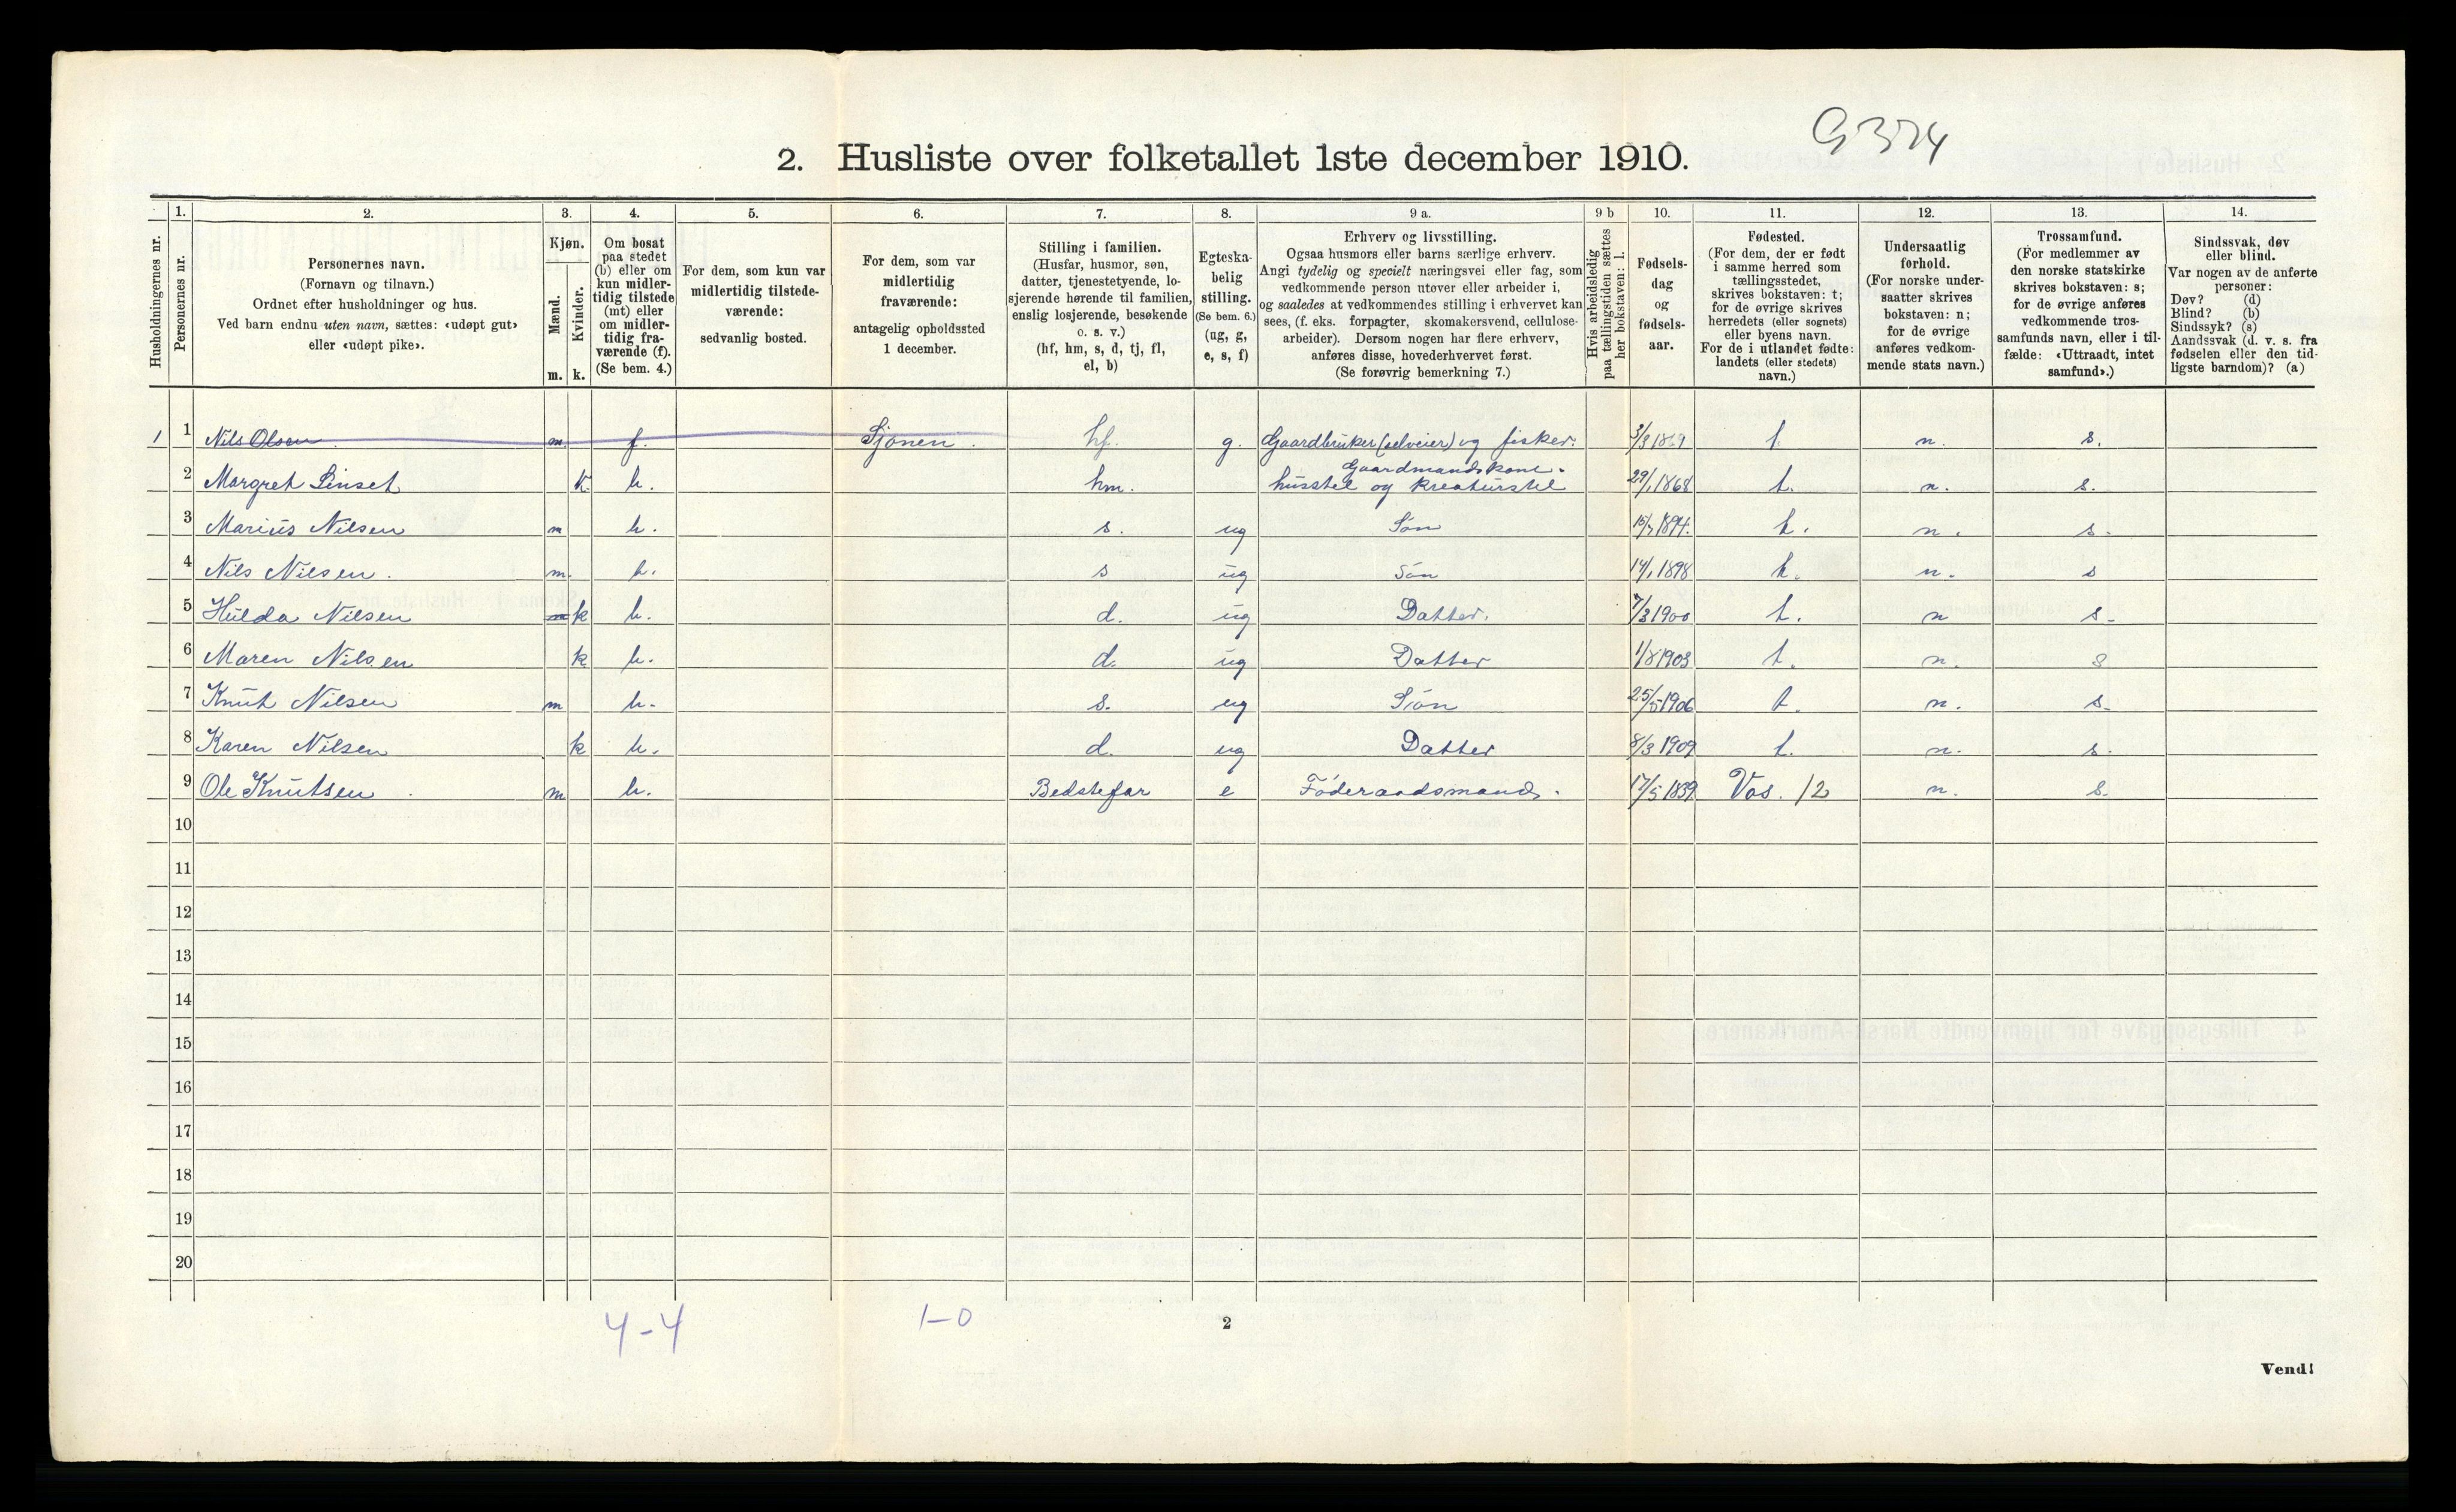 G 374
2. Husliste over folketallet 1ste december 1910.
Husholdningernes nr.
1.
Personernes nr.
2.
Personernes navn.
(Fornavn og tilnavn.)
Ordnet efter husholdninger og hus.
Ved barn endnu uten navn, sættes: «udøpt gut»
eller «udøpt pike».
3.
Kjøn.
Mænd.
m.
Kvinder.
k.
4.
Om bosat
paa stedet
(b) eller om
kun midler-
tidig tilstede
(mt) eller
om midler-
tidig fra-
værende (f).
(Se bem. 4.)
5.
For dem, som kun var
midlertidig tilstede-
værende:
sedvanlig bosted.
6.
For dem, som var
midlertidig
fraværende:
antagelig opholdssted
1 december.
7.
Stilling i familien.
(Husfar, husmor, søn,
datter, tjenestetyende, lo-
sjerende hørende til familien,
enslig losjerende, besøkende
o. s. v.)
(hf, hm, s, d, tj, fl,
el, b)
8.
Egteska-
belig
stilling.
(Se bem. 6.)
(ug, g,
e, s, f)
9 a.
Erhverv og livsstilling.
Ogsaa husmors eller barns særlige erhverv.
Angi tydelig og specielt næringsvei eller fag, som
vedkommende person utøver eller arbeider i,
og saaledes at vedkommendes stilling i erhvervet kan
sees, (f. eks. forpagter, skomakersvend, cellulose-
arbeider). Dersom nogen har flere erhverv,
anføres disse, hovederhvervet først.
(Se forøvrig bemerkning 7.)
9 b
Hvis arbeidsledig
paa tællingstiden sættes
her bokstaven: l.
10.
Fødsels-
dag
og
fødsels-
aar.
11.
Fødested.
(For dem, der er født
i samme herred som
tællingsstedet,
skrives bokstaven: t;
for de øvrige skrives
herredets (eller sognets)
eller byens navn.
For de i utlandet fødte:
landets (eller stedets)
navn.)
12.
Undersaatlig
forhold.
(For norske under-
saatter skrives
bokstaven: n;
for de øvrige
anføres vedkom-
mende stats navn.)
13.
Trossamfund.
(For medlemmer av
den norske statskirke
skrives bokstaven: s;
for de øvrige anføres
vedkommende tros-
samfunds navn, eller i til-
fælde: «Uttraadt, intet
samfund».)
14.
Sindssvak, døv
eller blind.
Var nogen av de anførte
personer:
Døv? (d)
Blind? (b)
Sindssyk? (s)
Aandssvak (d. v. s. fra
fødselen eller den tid-
ligste barndom)? (a)
1 1 Nils Olsen m. f. Sjønen. hf. g. Gaardbruker (selveier) og fisker. 3/3 1869 t. n. s.
Gaardmandskone.
2 Margret Linset k b. hm. husstel og kreaturstel 29/1 1868 t. n. s.
3 Marius Nilsen m b. s. ug Søn 1894. t. n. s.
4 Nils Nilsen. m. b. s ug Søn 14/1 1898 t. n. s
5 Hulda Nilsen m k b. d. ug Datter. 7/3 1900 t. n s.
6 Maren Nilsen k b. d. ug Datter 1/8 1903 t. n. s
7 Knut Nilsen m b. s. ug Søn 25/5 1906 t. n. s.
8 Karen Nilsen k b. d. ug Datter 8/3 1909 t. n. s.
9 Ole Knutsen m b. Bedstefar e Føderaadsmand. 17/5 1839 Vos. 12 n. s.
10
11
12
13
14
15
16
17
18
19
20
4-4 1-0
2
Vend!